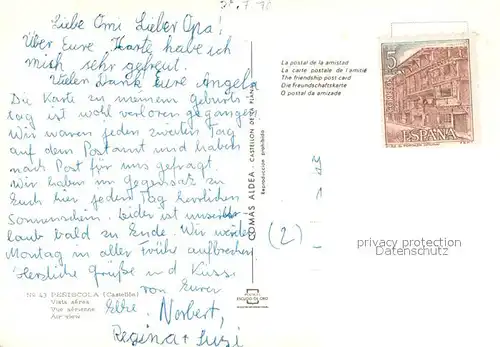 Liebe Omi Lieber Opa!
Über Eure Karte habe ich
mich sehr gefreut.
Vielen Dank Eure Angela
Die Karte zu meinem Geburts
tag ist wohl verloren gegangen
Wir waren jeden zweiten Tag
auf dem Postamt und haben
nach Post für uns gefragt.
Wir haben im Gegensatz zu
Euch hier jeden Tag herrlichen
Sonnenschein. Leider ist unser
laub bald zu Ende. Wir werden
Montag in aller Frühe aufbrechen
Herzliche Grüße und Küsse
von Eurer
Elke, Norbert,
Regina + Susi
Nº 43 PEÑISCOLA (Castellón)
Vista aérea
Vue aérienne
Air view
COMAS ALDEA - CASTELLON DE LA PLANA
Reproduccion prohibida
La postal de la amistad
La carte postale de l'amitié
The friendship post card
Die freundschaftskarte
O postal da amizade
5
ESPAÑA
(2)
privacy protection
Datenschutz